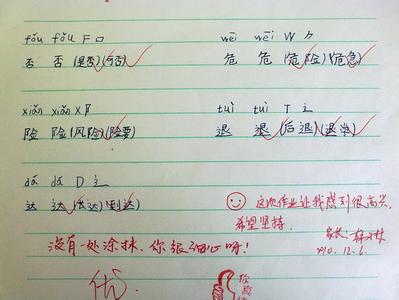 fǒu fǒu F 口 wēi wēi W ⺈
否 否 (是否)(可否) 危 危 (危险)(危急)
xiǎn xiǎn X 阝 tuì tuì T 辶
险 险 (风险)(险要) 退 退 (后退)(退学)
dá dá D 辶
达 达 (发达)(到达)
这次作业让我感到很高兴,
希望坚持.
没有一处涂抹、你很细心呀! 家长:
2010. 12. 6.
优
你真棒